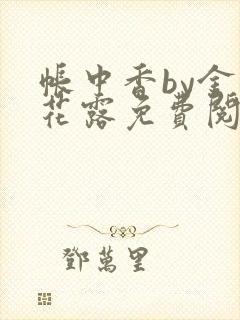 帳中香by金
花露免費閱
鄧萬里